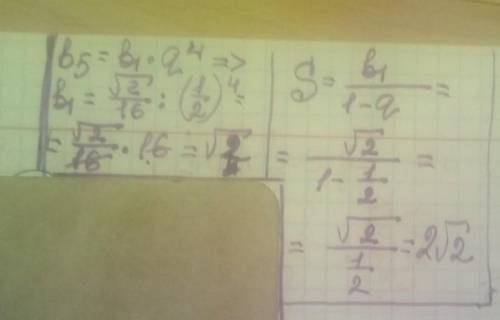 b₅ = b₁ · q⁴ =>
b₁ = √2/16 : (1/2)⁴ =
= √2/16 · 16 = √2
S = b₁/(1-q) =
= √2/(1 - 1/2) =
= √2/(1/2) = 2√2